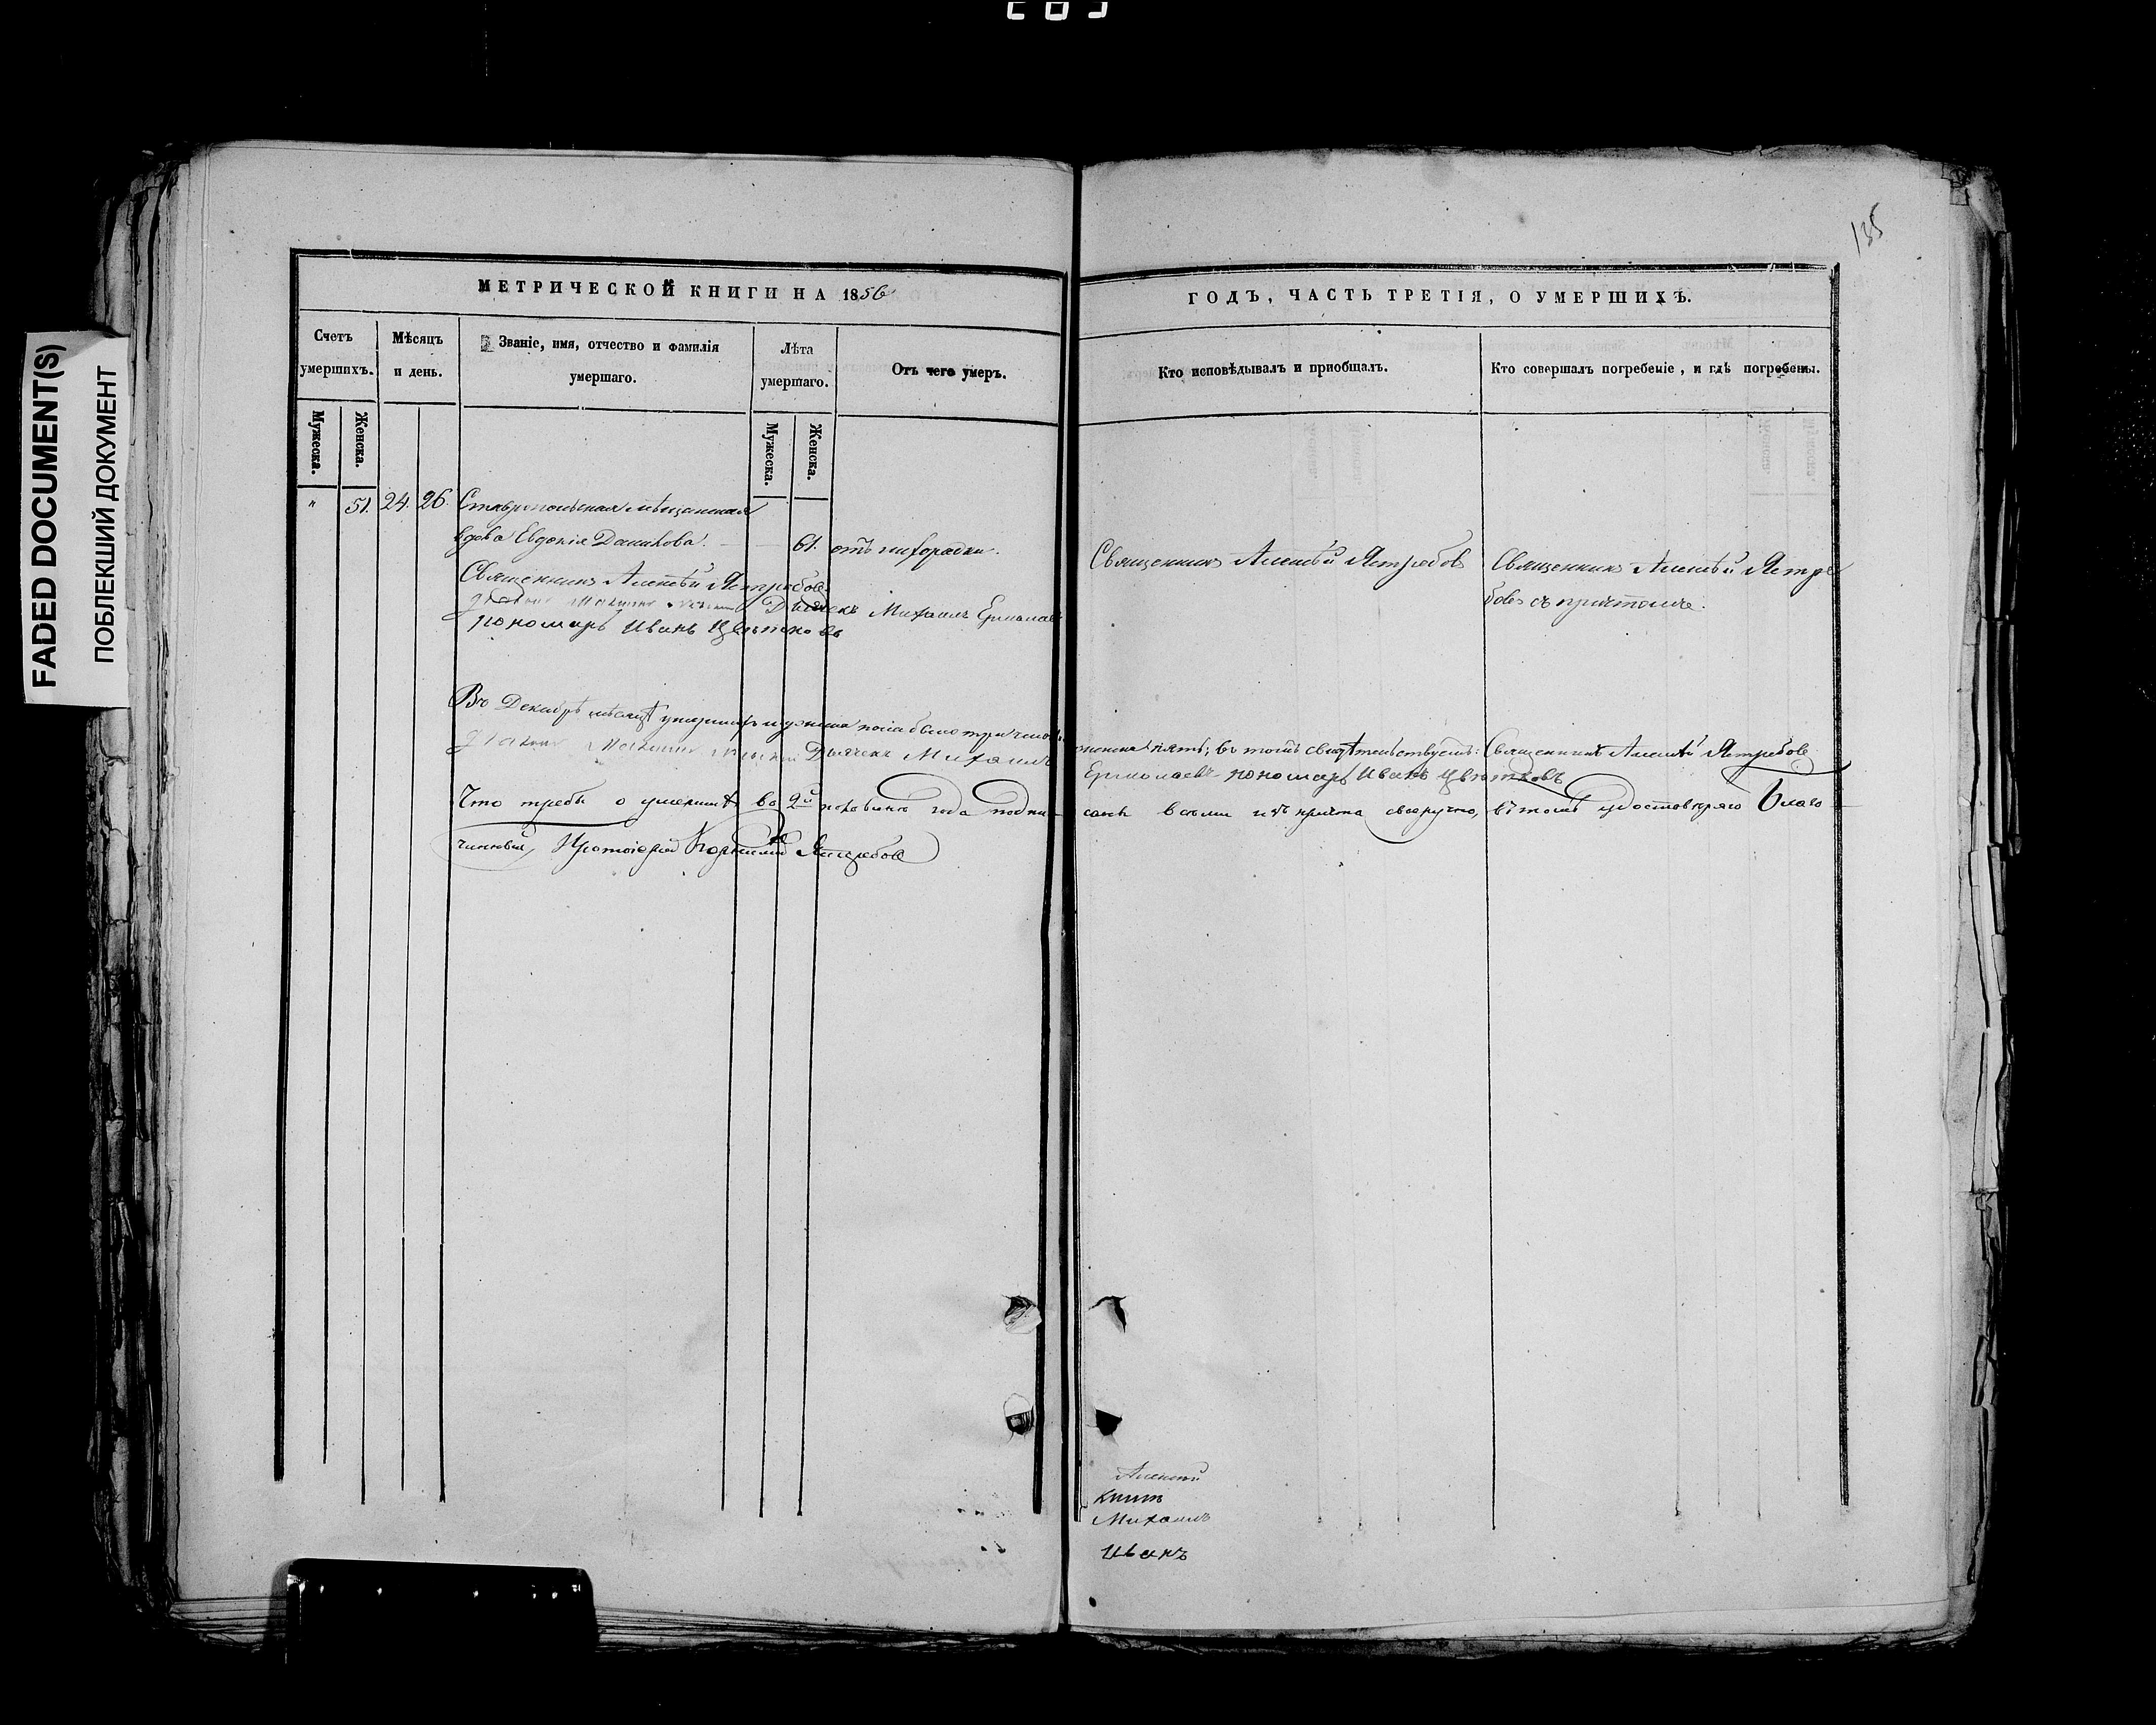 FADED DOCUMENT(S)
ПОБЛЕКШИЙ ДОКУМЕНТ
135
МЕТРИЧЕСКОЙ КНИГИ НА 1856
ГОДЪ, ЧАСТЬ ТРЕТІЯ, О УМЕРШИХЪ.
Счетъ умершихъ.
Мѣсяцъ и день.
Званіе, имя, отчество и фамилія умершаго.
Лѣта умершаго.
Отъ чего умеръ.
Кто исповѣдывалъ и пріобщалъ.
Кто совершалъ погребеніе, и гдѣ погребены.
Мужеска.
Женска.
Мужеска.
Женска.
" 51. 24. 26. Ставропольская мѣщанская
вдова Евдокія Данилова. 61. отъ лихорадки.
Священникъ Алексѣй Ястребовъ
Священникъ Алексѣй Ястре
бовъ съ причтомъ.
Священникъ Алексѣй Ястребовъ
Дьячекъ Михаилъ Ермолаевъ
пономарь Иванъ Цвѣтковъ
Въ Декабрѣ мѣсяцѣ умершихъ мужеска пола было три
женска пять; въ томъ свидѣтельствуемъ: Священникъ Алексѣй Ястребовъ
Дьячекъ Михаилъ Ермолаевъ пономарь Иванъ Цвѣтковъ
Что требы о умершихъ во 2й половинѣ года подпи
саны всѣми изъ причта своеручно, въ томъ удостовѣряю Благо
чинный, Протоіерей Ястребовъ
Алексѣй
Михаилъ
Иванъ